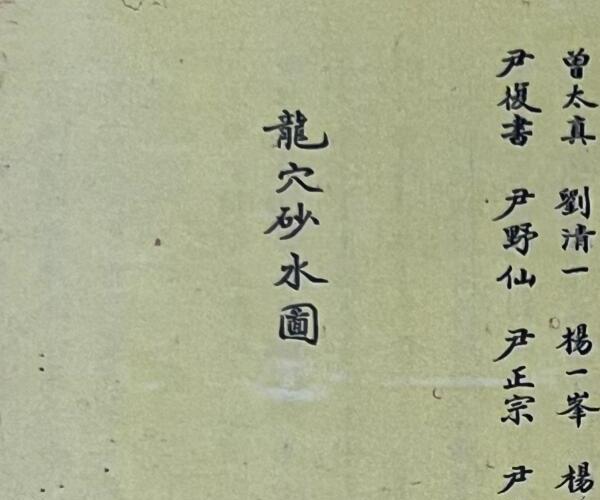 曾太真 劉清一 楊一峯 楊
尹復書 尹野仙 尹正宗 尹
龍穴砂水圖